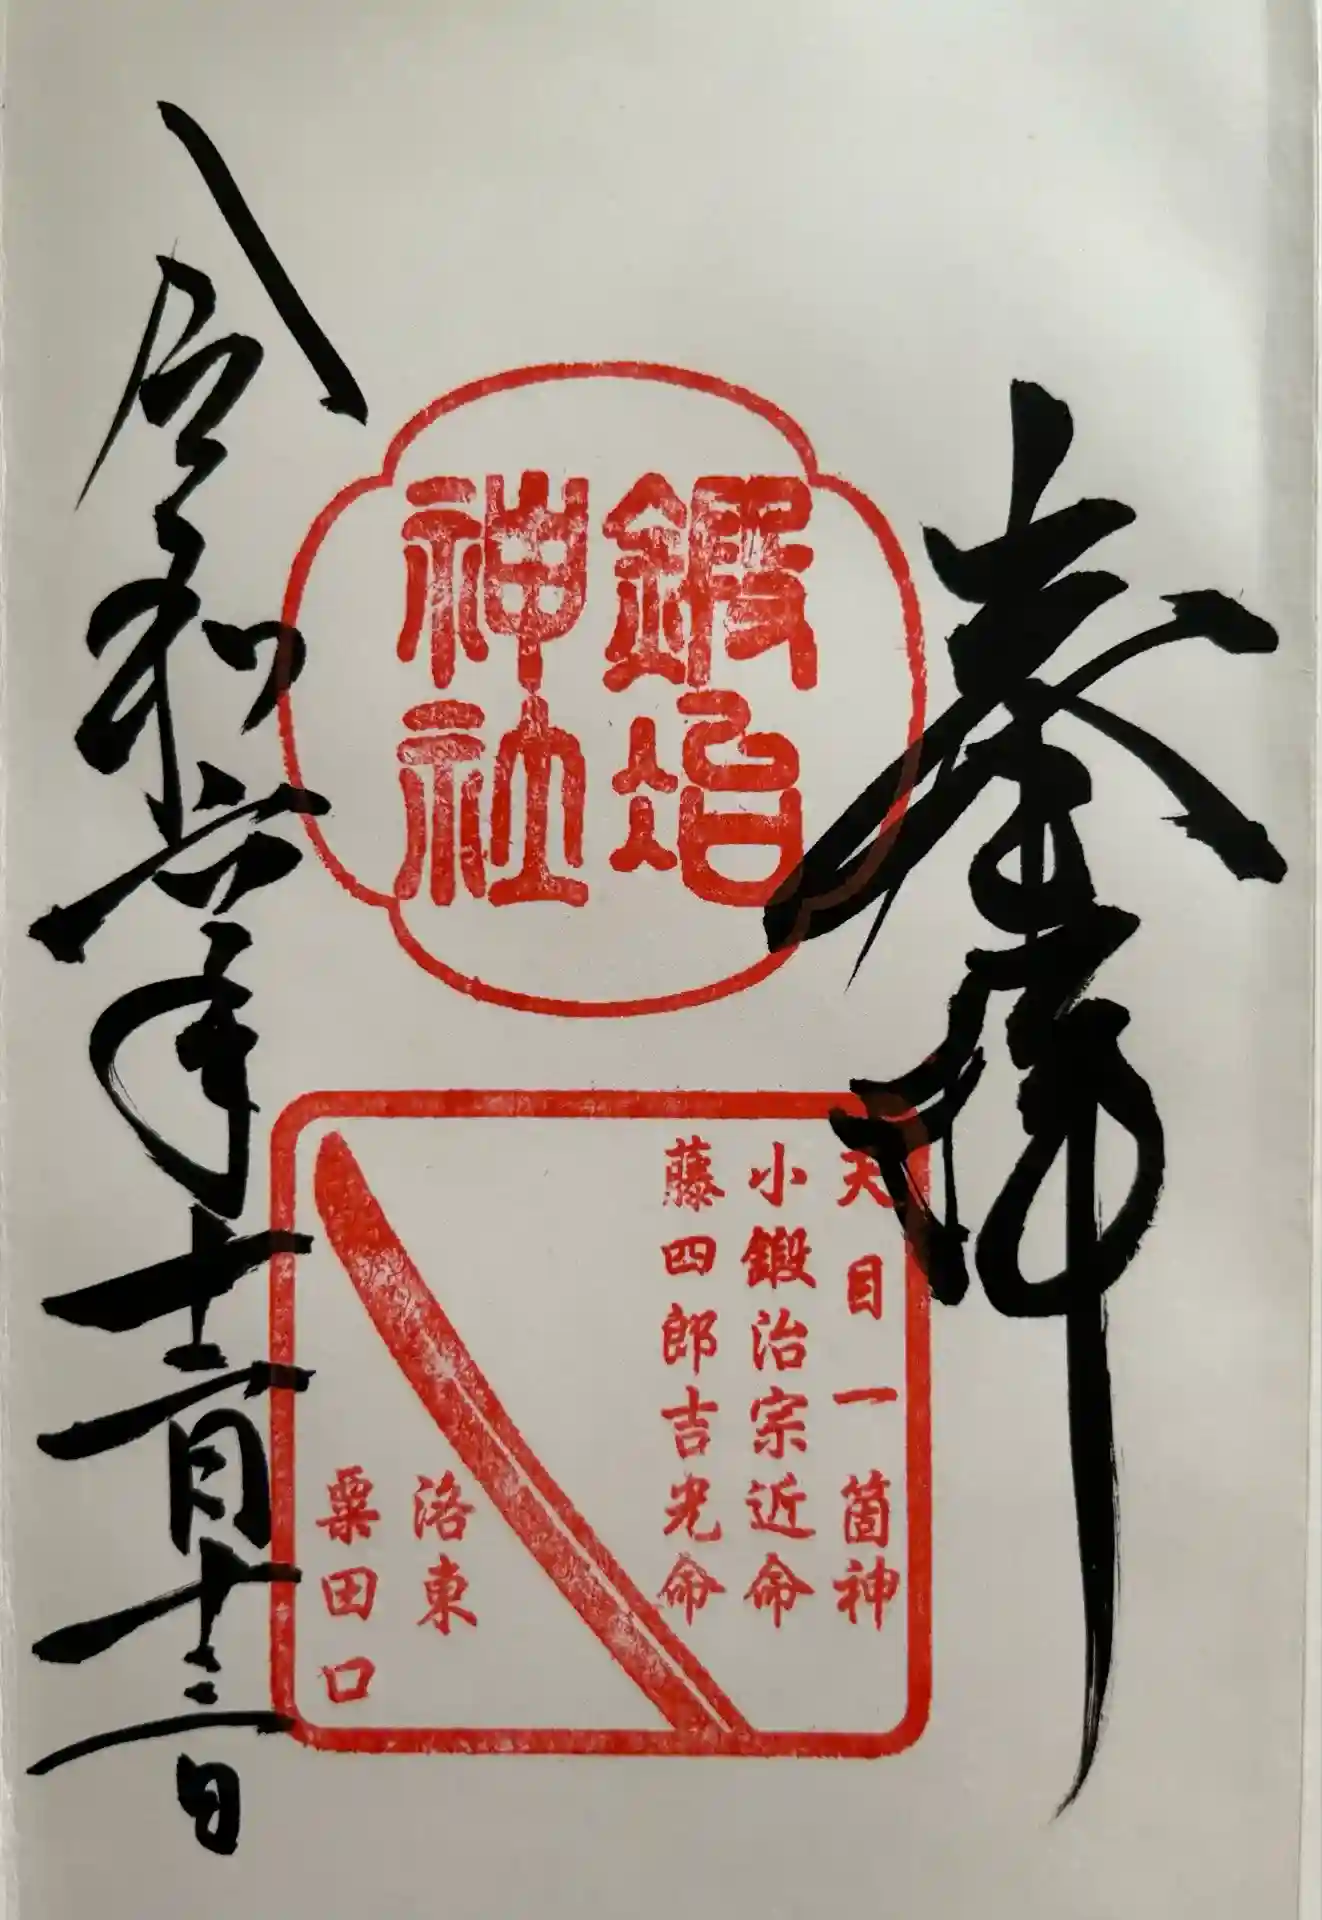 奉拝
鍛冶
神社
天目一箇神
小鍛治宗近命
藤四郎吉光命
洛東
粟田口
令和六年十二月十三日